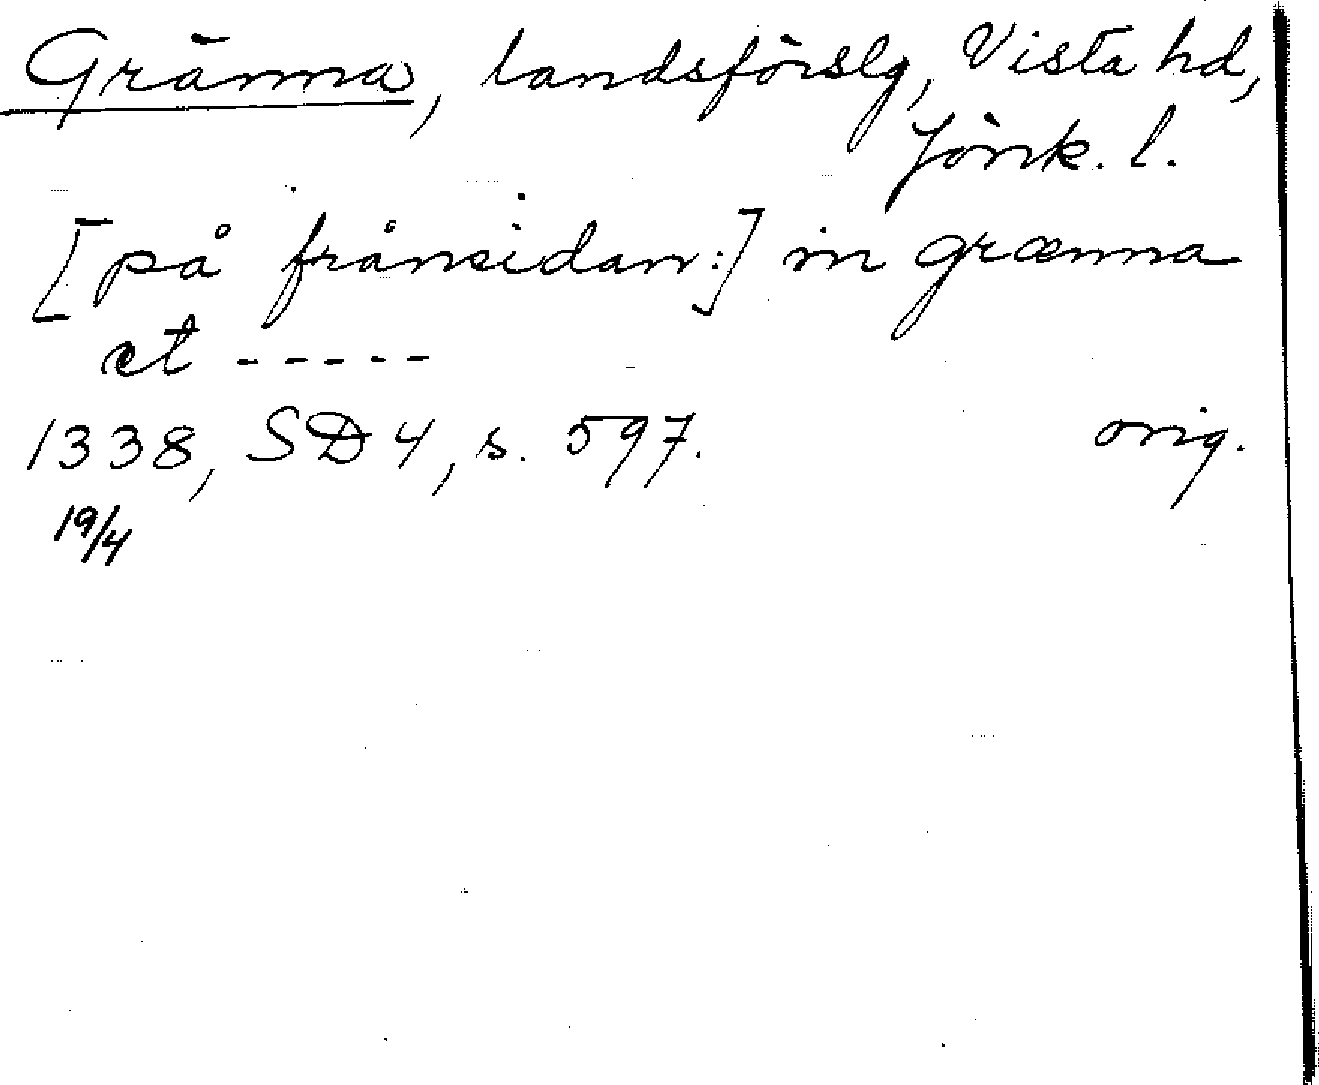 Gränna, landsförslg, Vista hd,
Jönk. l.
[på frånsidan:] in grænna
et -----
1338, SD 4, s. 597. orig.
19/4